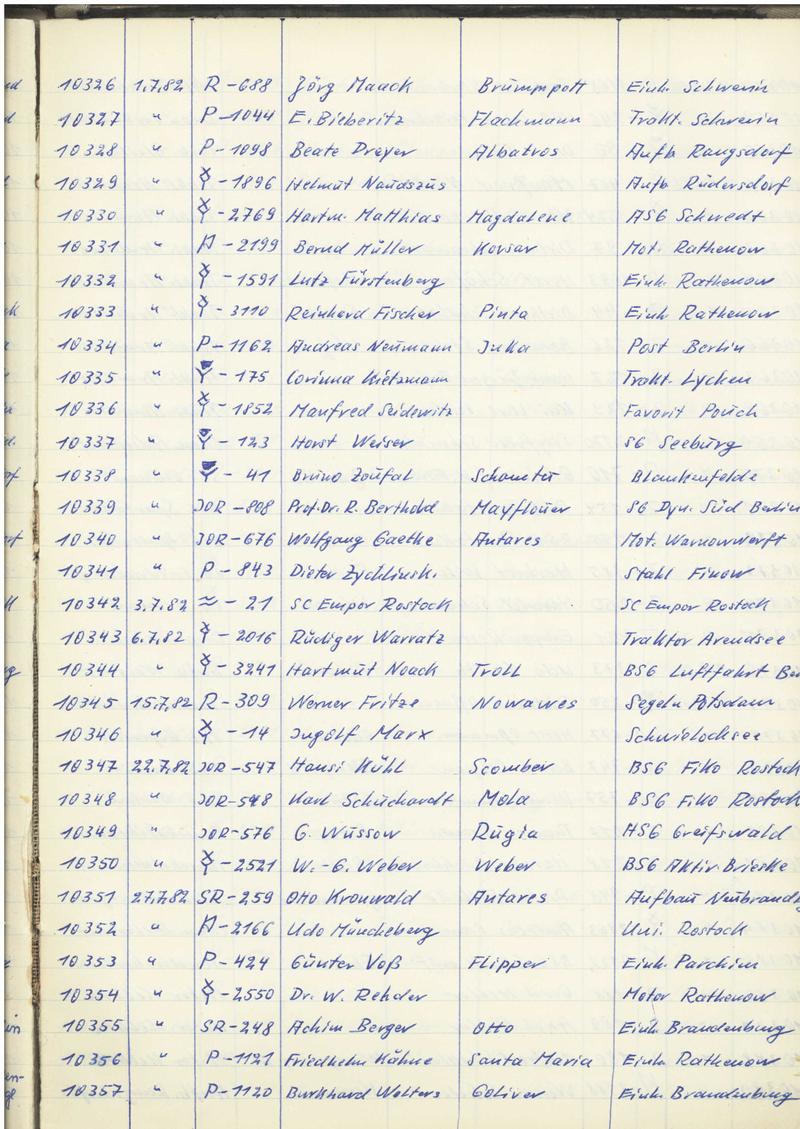 10326 1.7.82 R-688 Jörg Maack Brummpott Einh. Schwerin
10327 " P-1044 E. Bieberitz Flachmann Trakt. Schwerin
10328 " P-1098 Beate Dreyer Albatros Aufb Rangsdorf
10329 " -1896 Helmut Naudszus Aufb Rüdersdorf
10330 " -2769 Hartm. Matthias Magdalene ASG Schwedt
10331 " -2199 Bernd Müller Korsar Mot. Rathenow
10332 " -1591 Lutz Fürstenberg Einh. Rathenow
10333 " -3110 Reinhard Fischer Pinta Einh Rathenow
10334 " P-1162 Andreas Neumann Juka Post Berlin
10335 " -175 Corinna Kietzmann Trakt. Lychen
10336 " -1852 Manfred Seidewitz Favorit Pouch
10337 " -123 Horst Weiser SG Seeburg
10338 " -41 Bruno Zoufal Blankenfelde
10339 " JOR-808 Prof. Dr. R. Berthold Mayflower SG Dyn. Süd Berlin
10340 " JOR-676 Wolfgang Gaethe Antares Mot. Warnowwerft
10341 " P-843 Dieter Zychlinsk. Stahl Finow
10342 3.7.82 ≈-21 SC Empor Rostock SC Empor Rostock
10343 6.7.82 -2016 Rüdiger Warratz Traktor Arendsee
10344 " -3241 Hartmut Noack Troll BSG Luftfahrt
10345 15.7.82 R-309 Werner Fritze Nowawes Segeln Potsdam
10346 " -14 Ingolf Marx Schwielochsee
10347 22.7.82 JOR-547 Hansi Kühl Scomber BSG Fiko Rostock
10348 " JOR-548 Karl Schuchardt Mola BSG Fiko Rostock
10349 " JOR-576 G. Wussow Rugia HSG Greifswald
10350 " -2521 W.-G. Weber Weber BSG Aktiv. Brieske
10351 27.7.82 SR-259 Otto Kronwald Antares Aufbau
10352 " -2166 Udo Müncheberg Uni. Rostock
10353 " P-424 Günter Voß Flipper Einh. Parchim
10354 " -2550 Dr. W. Rehder Motor Rathenow
10355 " SR-248 Achim Berger Otto Einh Brandenburg
10356 " P-1121 Friedhelm Kähne Santa Maria Einh Rathenow
10357 " P-1120 Burkhard Wolters Goliver Einh. Brandenburg